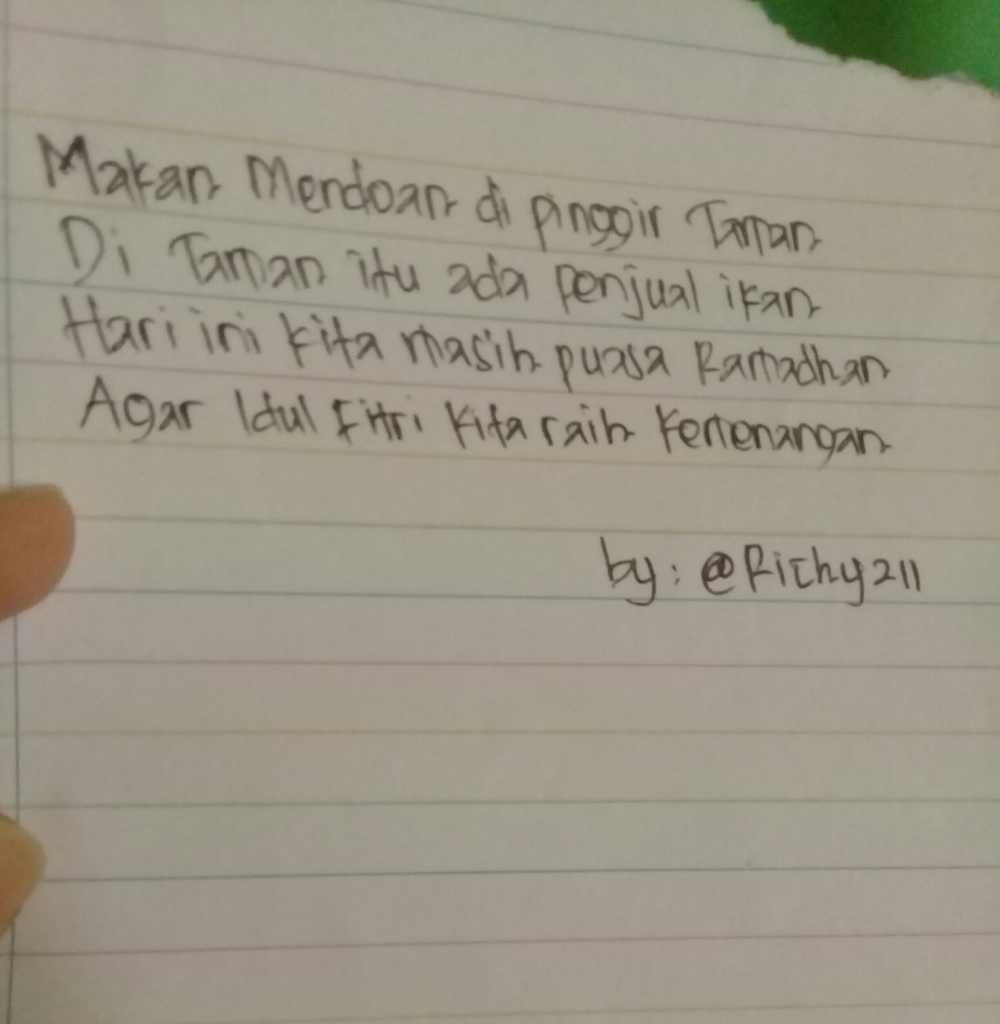 Makan Mendoan di pinggir Taman
Di Taman itu ada penjual ikan
Hari ini kita masih puasa Ramadhan
Agar Idul Fitri kita raih Kemenangan
by: @Richy211